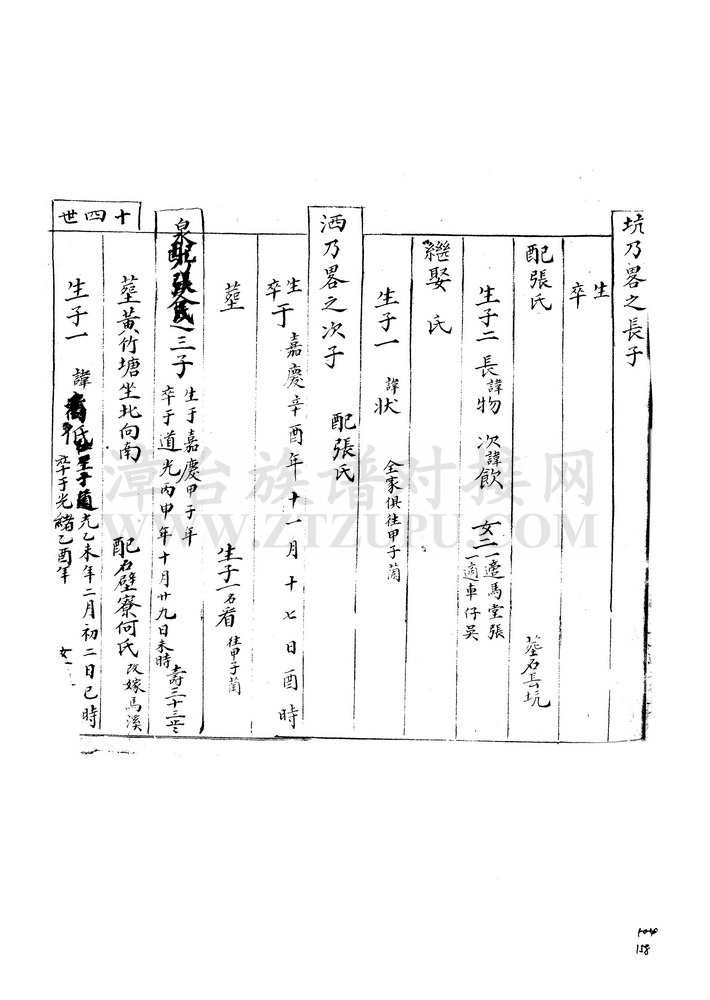 坑乃畧之長子
生
卒
配張氏
塟石長坑
生子二 長諱物 次諱飲 女二 一適馬堂張
一適車仔吳
繼娶 氏
生子一 諱狀 仝家俱往甲子蘭
洒乃畧之次子
配張氏
生
卒于嘉慶辛酉年十一月十七日酉時
塟
生子一名看 往甲子蘭
泉 三子
生于嘉慶甲子年
卒于道光丙申年十月廿九日未時
壽三十三
塟黃竹塘坐北向南
配石壁寮何氏 改嫁馬溪
十四世
生子一 諱 低 生于道光乙未年二月初二日巳時
卒于光緒乙酉年
女
漳台族谱对接网
WWW.ZTZUPU.COM
104
158